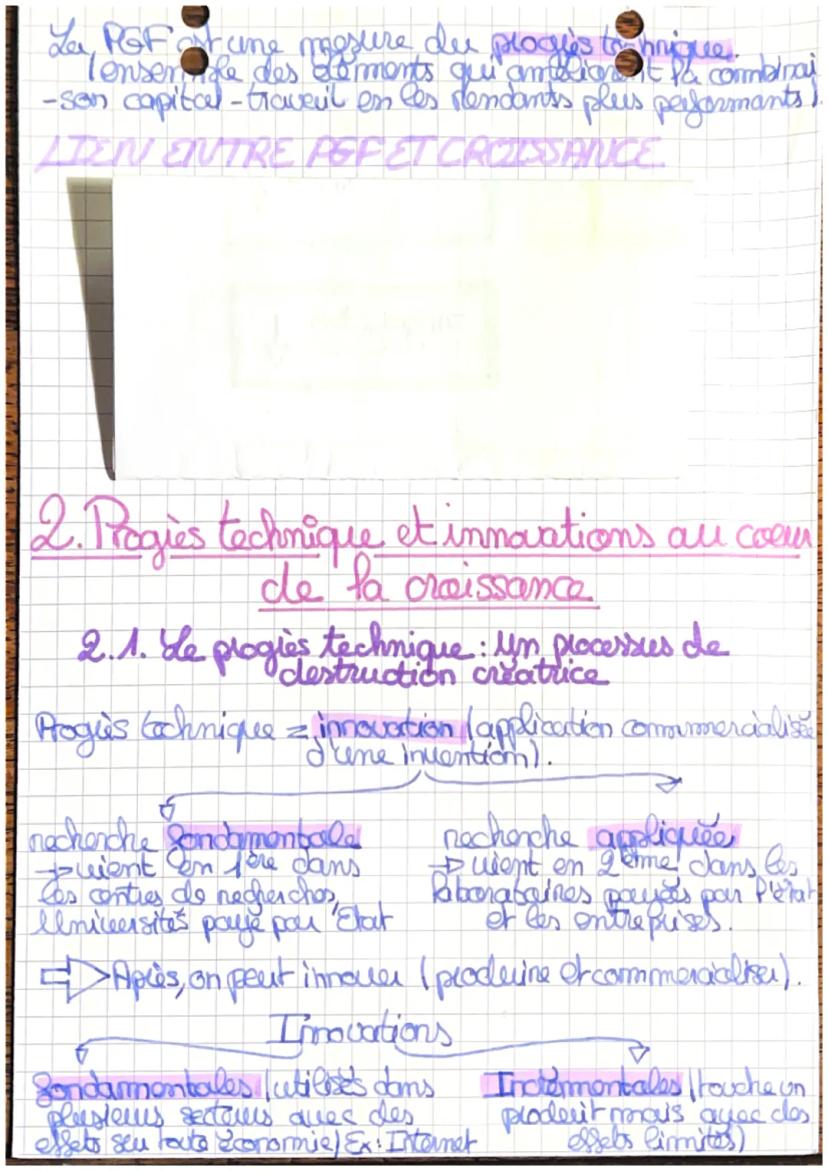 La PGF est une mesure du progrès technique.
(ensemble des éléments qui améliorent la combinai
-son capital-travail en les rendants plus performants).
LIEN ENTRE PGF ET CROISSANCE
2. Progrès technique et innovations au coeur
de la croissance
2.1. Le progrès technique : Un processus de
destruction créatrice
Progrès technique = innovation (application commercialisée
d'une invention).
recherche fondamentale
→ vient en 1ère dans
les centres de recherches,
Universités payé par Etat
recherche appliquée
→ vient en 2ème dans les
laboratoires payés par l'état
et les entreprises.
Après, on peut innover (produire et commercialiser).
Innovations
Fondamentales (utilisés dans
plusieurs secteurs avec des
effets sur toute économie) Ex: Internet
Incrémentales (touche un
produit mais avec des
effets limités)